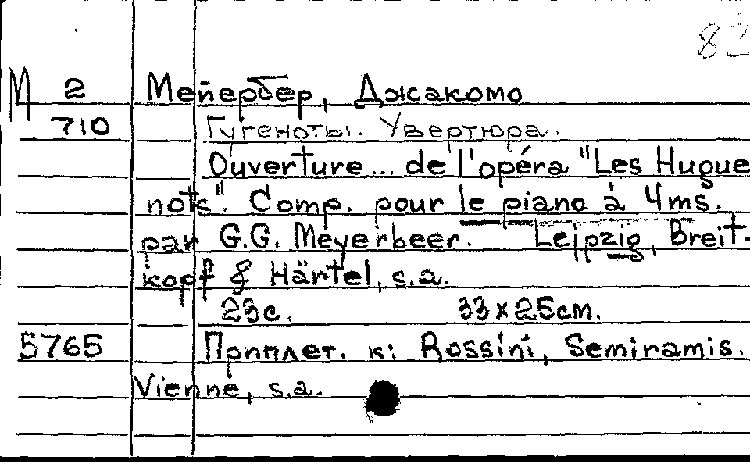 83
М 2 Мейербер, Джакомо
710 Гугеноты. Увертюра.
Ouverture... de l'opéra "Les Hugue
nots". Comp. pour le piano à 4ms.
par G.G. Meyerbeer. Leipzig, Breit-
kopf & Härtel, s.a.
23с. 33x25см.
5765 Приплет. к: Rossini, Semiramis.
Vienne, s.a.